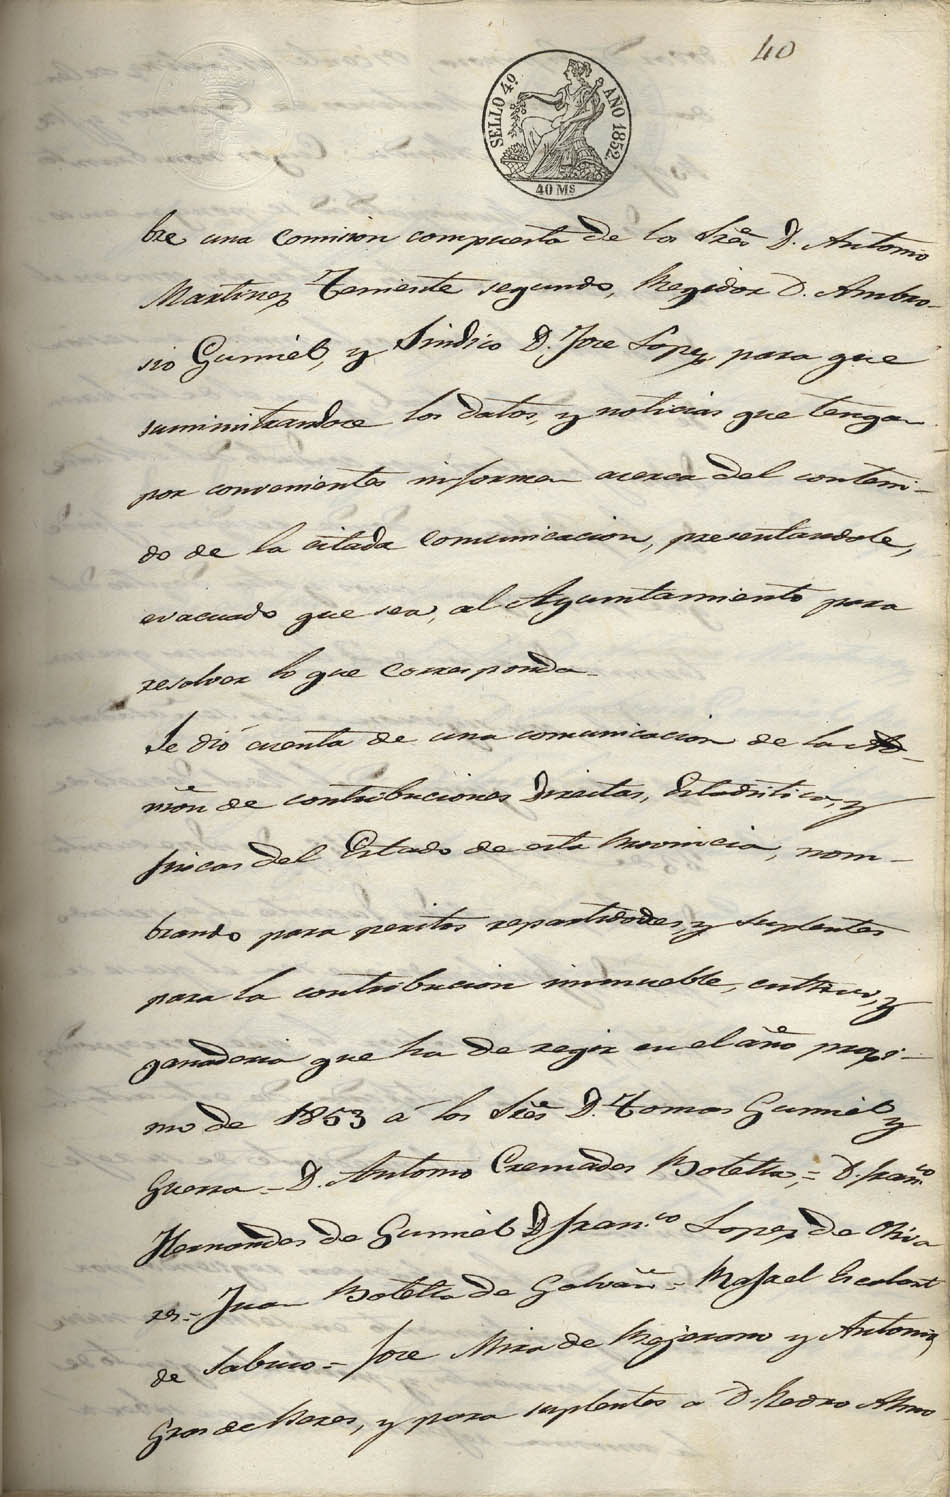 40
SELLO 4º AÑO 1852
40 Ms
bre una comision compuesta de los Sres D. Antonio
Martinez Teniente segundo, Regidor D. Ambro-
sio Gumiel, y Sindico D. Jose Lopez, para que
suministrandoce los datos, y noticias que tengan
por convenientes informen acerca del conteni-
do de la citada comunicacion, presentandole,
evacuado que sea, al Ayuntamiento para
resolver lo que corresponda.
Se dió cuenta de una comunicacion de la Ad-
mon de contribuciones Directas, Estadistica, y
fincas del Estado de esta Provincia, nom-
brando para peritos repartidores, y suplentes
para la contribucion inmueble, cultivo, y
ganaderia que ha de regir en el año progsi-
mo de 1853 á los Sres D. Tomas Gumiel y
Guerra = D. Antonio Cremades Botella, = D. Franco
Hernandes de Gumiel D Fran.co Lopez de Oliva
res = Juan Botella de Galvañ = Rafael Escolant
de Sabuco = Jose Mira de Bejerano y Antonio
Gras de Peres, y para suplentes a D. Pedro